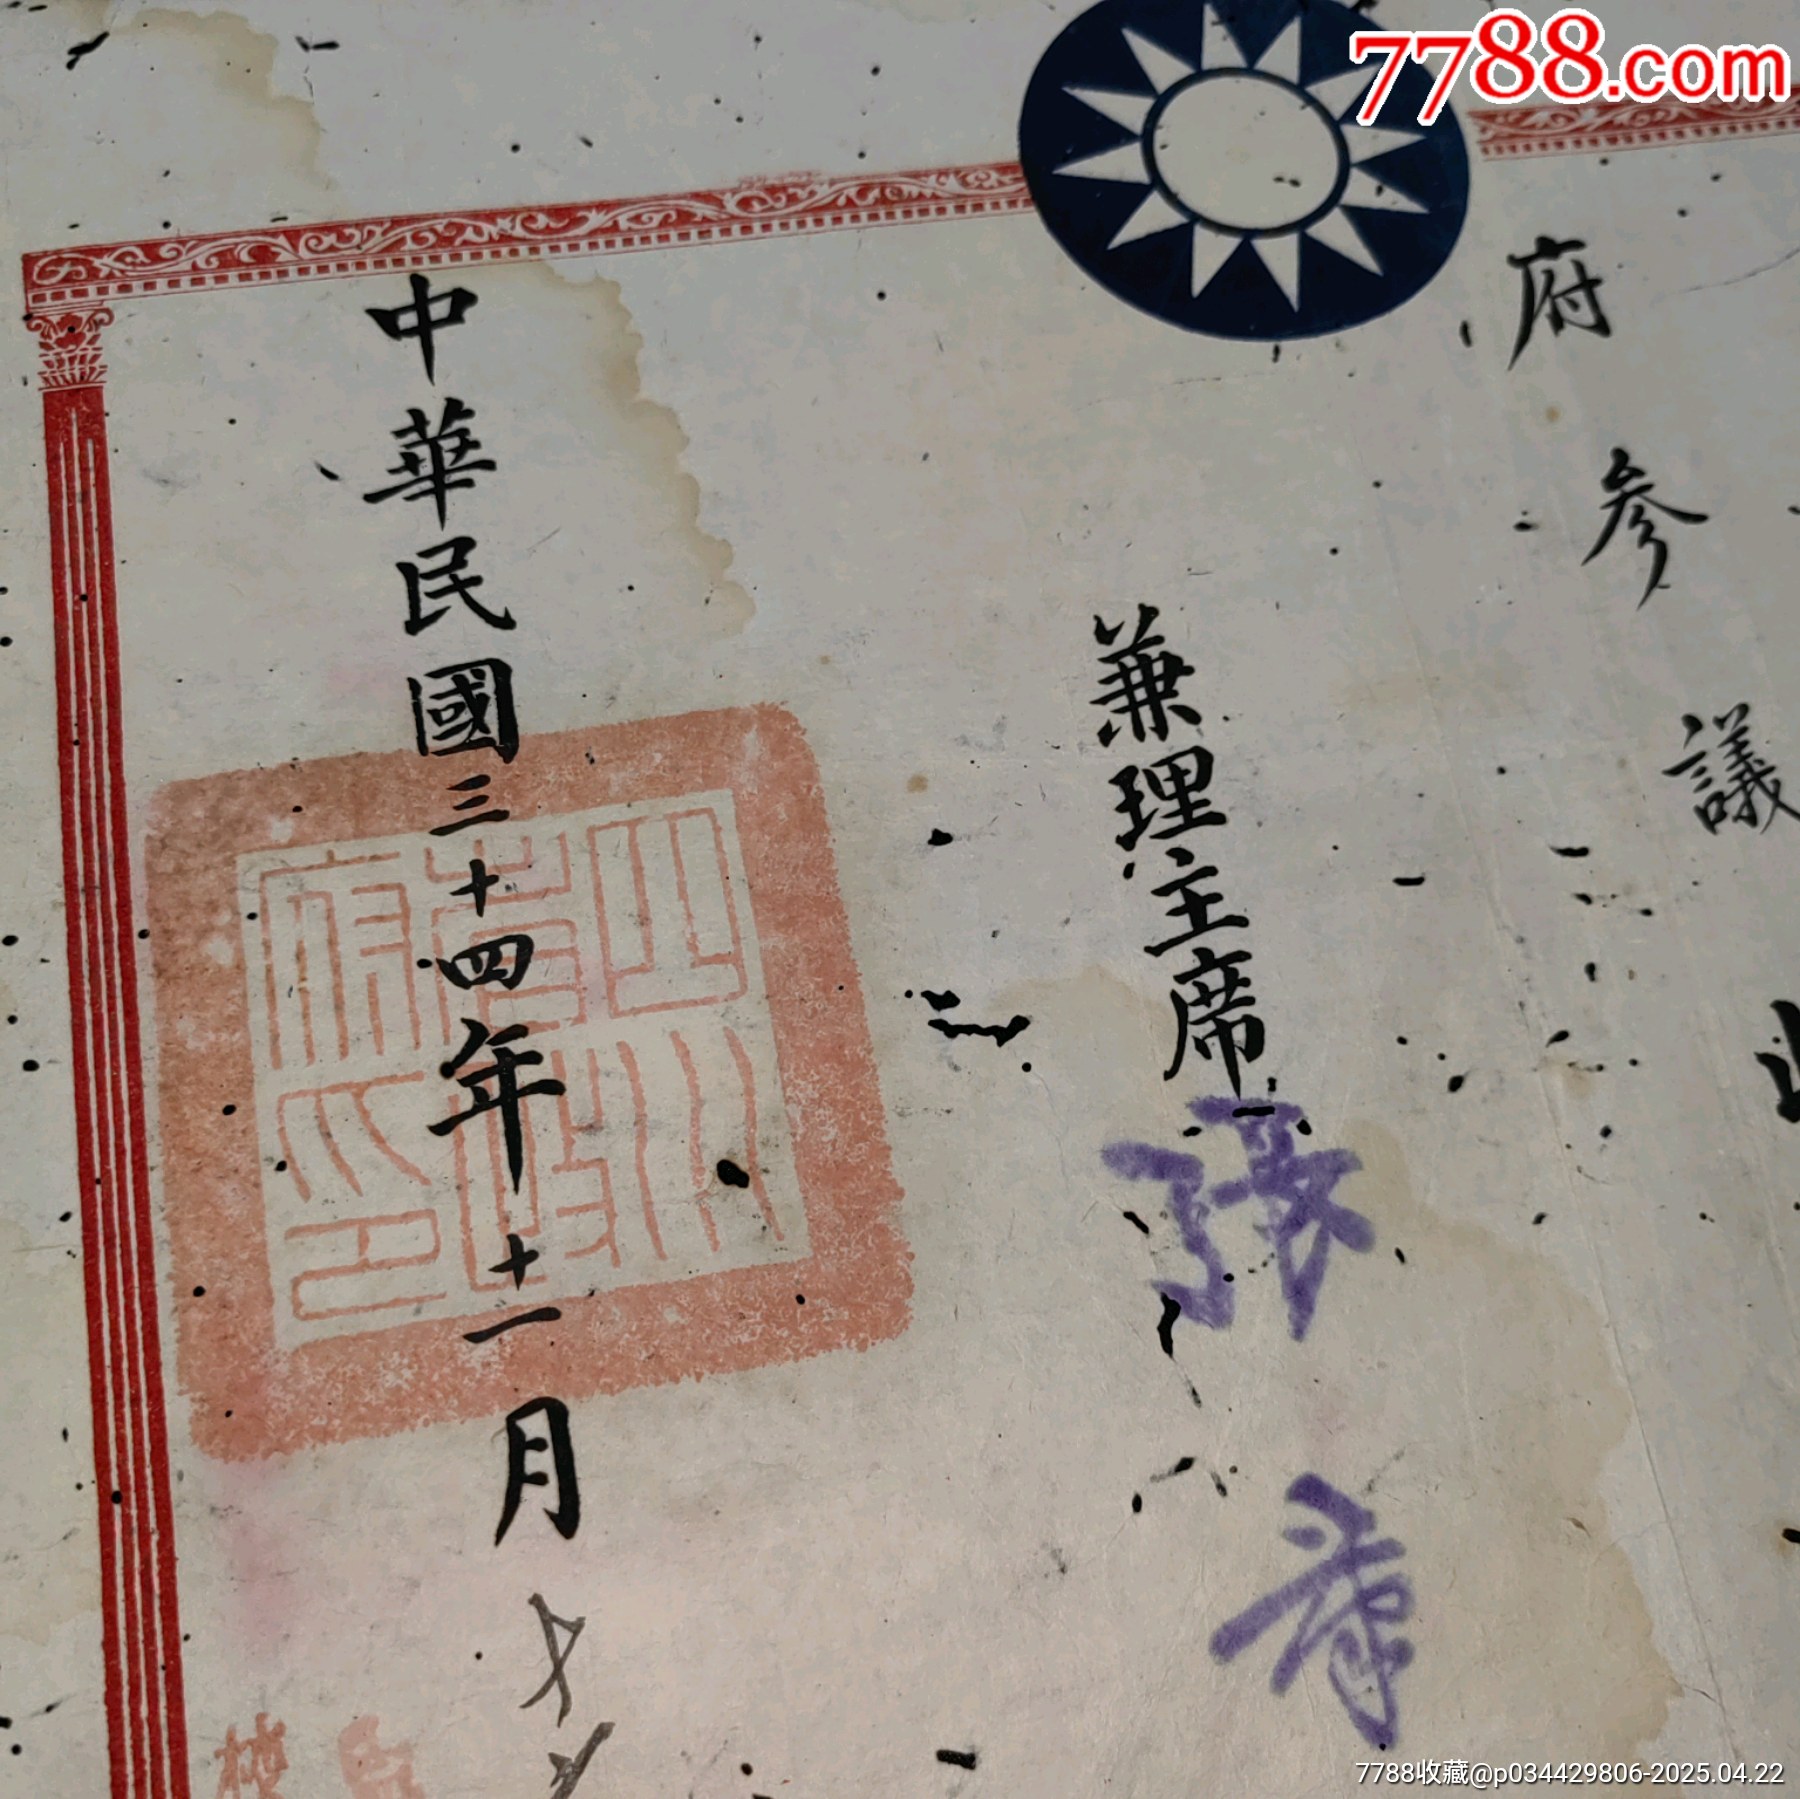 7788.com
府參議
兼理主席張羣
中華民國三十四年十一月
四川省政府印
7788收藏@p034429806-2025.04.22